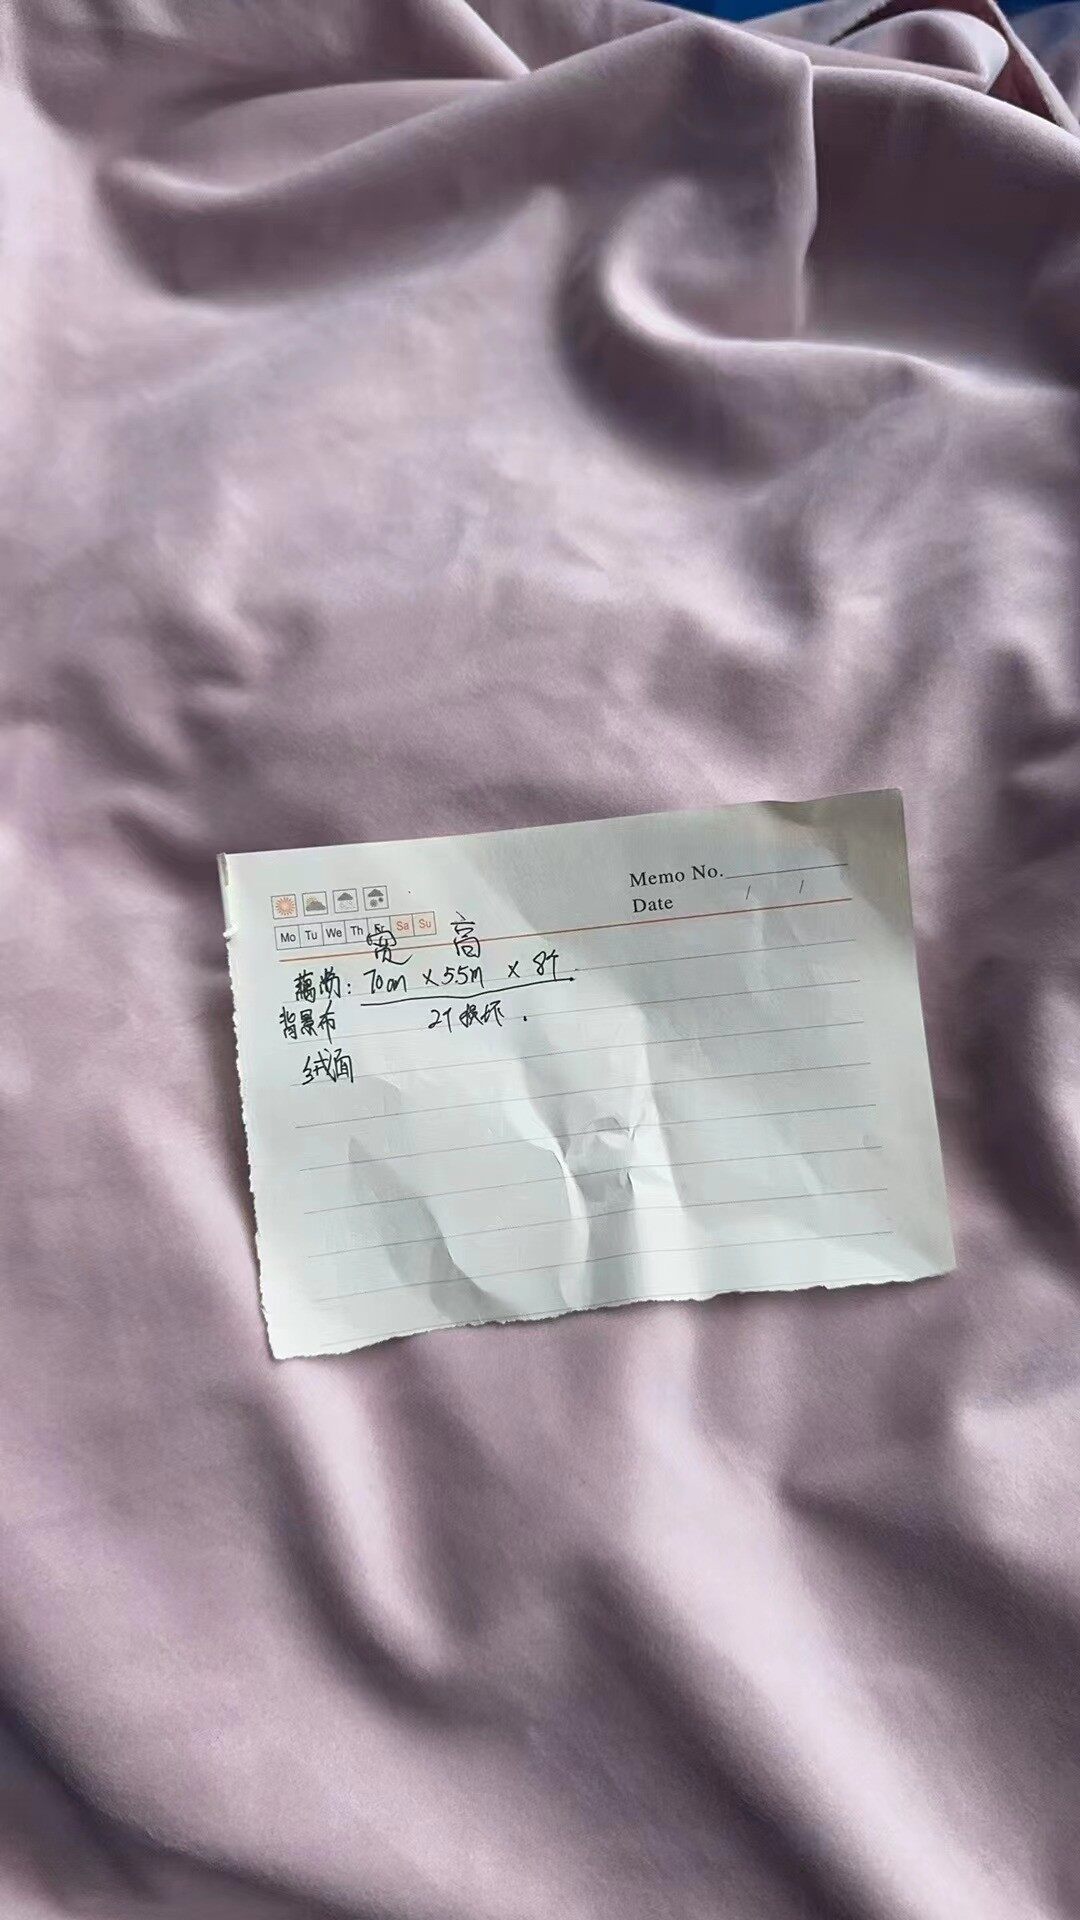 Memo No.
Date / /
Mo Tu We Th Fr Sa Su
宽 高
藕粉: 70cm x 5.5m x 8个.
背景布 2个损坏.
绒面